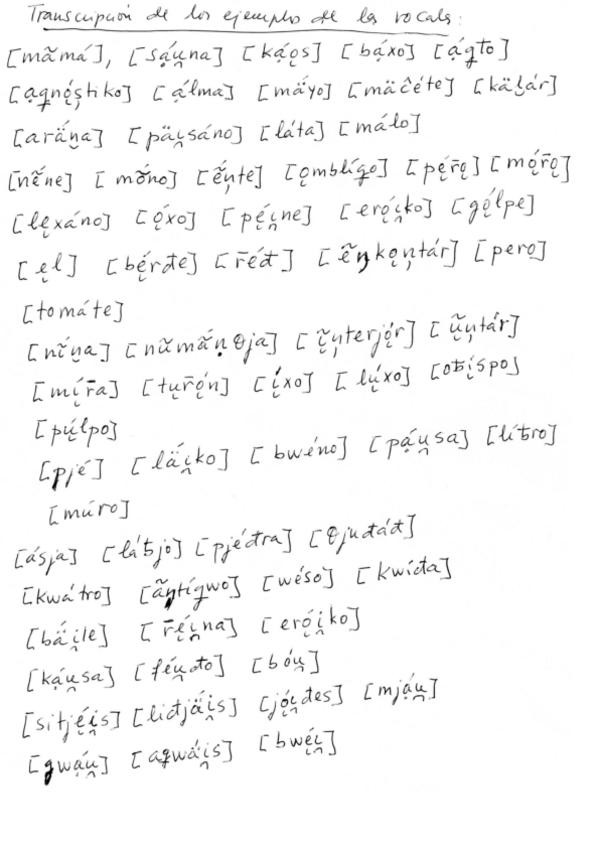 Transcripción de los ejemplos de las vocals:
[mãmá], [sạ́u̯na] [kạ́o̯s] [bạ́xo] [ạ́g̵to]
[ạgnọ́s̹tiko] [ạ́lma] [mä́yo] [mäĉéte] [käl̬ár]
[arän̬a] [päi̯sáno] [láta] [málo]
[nẽ́ne] [mṍno] [ẽ́n̯te] [ọmblígo] [pẹ́r̄ọ] [mọ́r̄ọ]
[lẹxáno] [ọ́xo] [pẹ́i̯ne] [erọ́i̯ko] [gọ́lpe]
[ẹl] [bẹ́rđe] [r̄ẹ́đ] [ẽŋkọn̯tár] [pero]
[tomáte]
[nĩ́n̬a] [nũmãn̯θja] [ĩn̯terjọ́r] [ũn̯tár]
[mị́r̄a] [tụr̄ọ́n] [ị́xo] [lụ́xo] [oƀị́spo]
[pụ́lpo]
[pjé] [läí̯ko] [bwéno] [pạ́u̯sa] [líƀro]
[múro]
[ásja] [láƀjo] [pjéđra] [θjuđáđ]
[kwátro] [ãn̯tígwo] [wéso] [kwíđa]
[bä́i̯le] [r̄ẹ́i̯na] [erọ́i̯ko]
[kạ́u̯sa] [féu̯đo] [bóu̯]
[sitjẹ́i̯s] [liđjä́i̯s] [jọ́i̯đes] [mjạ́u̯]
[gwạ́u̯] [agwä́i̯s] [bwẹ́i̯]